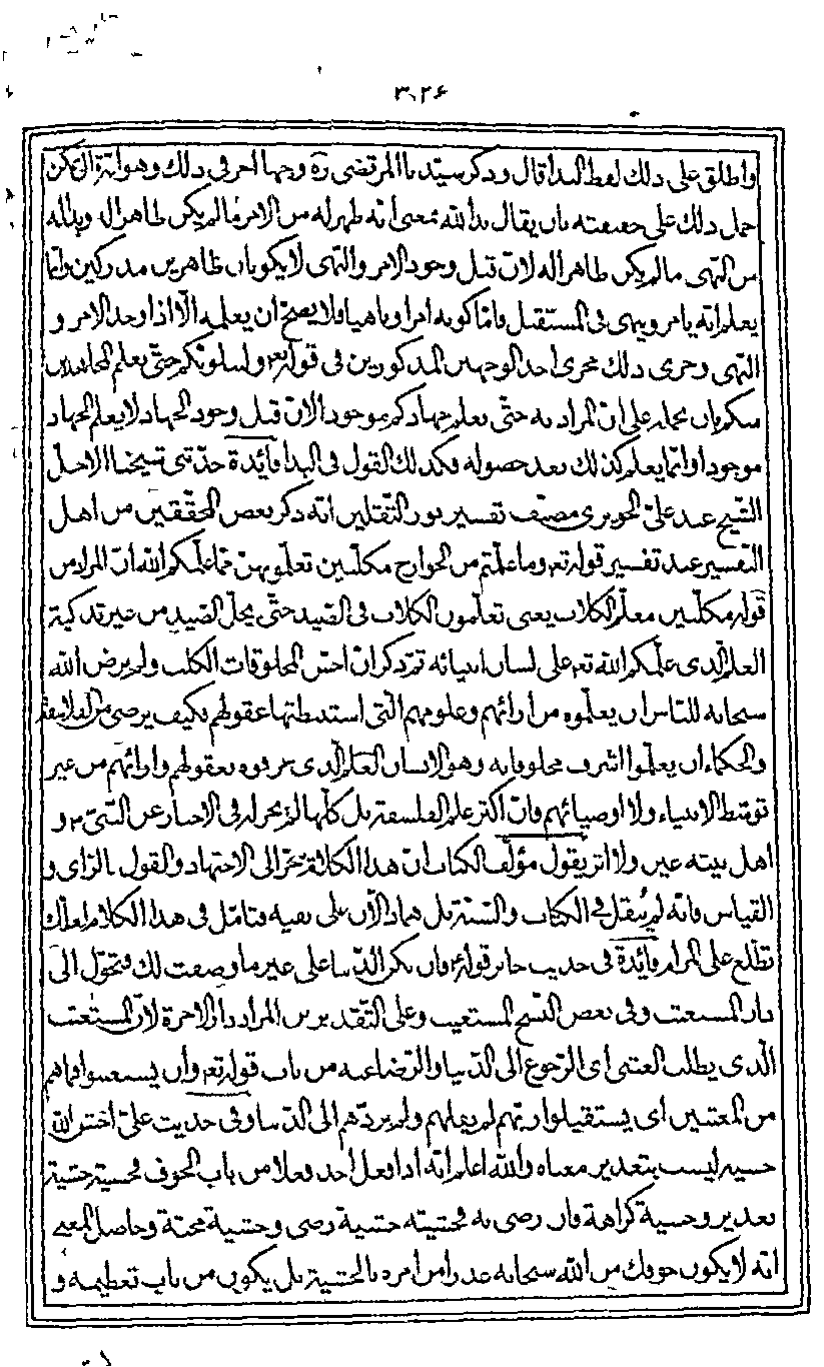 ٣٢٦
واطلق على ذلك لفظ البدا قال وذكر سيّدنا المرتضى ره وجها اخر في ذلك وهو انه يمكن
حمل ذلك على حقيقته بان يقال بدا لله بمعنى انه ظهر له من الامر ما لم يكن ظاهرا له وبدا له
من النهى ما لم يكن ظاهرا له لان قبل وجود الامر والنهى لا يكونان ظاهرين مدركين وانما
يعلم انه يامر وينهى فى المستقبل فامّا كونه امرا وناهيا فلا يصحّ ان يعلمه الّا اذا وجد الامر و
النهى وجرى ذلك مجرى احد الوجهين المذكورين فى قوله تع ولنبلونكم حتّى نعلم المجاهدين
منكم بان نحمله على انّ المراد به حتّى نعلم جهادكم موجودا لان قبل وجود الجهاد لا يعلم الجهاد
موجودا وانّما يعلم كذلك بعد حصوله فكذلك القول فى البدا فائدة حدّثنى شيخنا الاجل
الشيخ عبد علىّ الحويزى مصنّف تفسير نور الثقلين انه ذكر بعض المحقّقين من اهل
التفسير عند تفسير قوله تع وما علّمتم من الجوارح مكلّبين تعلّمونهنّ ممّا علّمكم الله انّ المراد من
قوله مكلّبين معلّم الكلاب يعنى تعلّمون الكلاب فى الصّيد حتّى يحلّ الصّيد من غير تذكية
العلم الّذى علّمكم الله تع على لسان انبيائه ثمّ ذكر ان اخسّ المخلوقات الكلب ولم يرض الله
سبحانه للنّاس ان يعلّموه من ارائهم وعلومهم الّتى استنبطتها عقولهم فكيف يرضى من الفلاسفة
والحكماء ان يعلّموا اشرف مخلوقاته وهو الانسان العلم الّذى عرفوه بعقولهم وارائهم من غير
توسّط الانبياء ولا اوصيائهم فانّ اكثر علم الفلسفة بل كلّها لم يجر له فى الاخبار عن النّبىّ ص و
اهل بيته عين ولا اثر يقول مؤلّف الكتاب انّ هذا الكلام ينجرّ الى الاجتهاد والقول بالرّاى و
القياس فانه لم يُنقل فى الكتاب والسّنّة بل هما دالّان على نفيه فتامّل فى هذا الكلام لعلّك
تطّلع على المرام فائدة فى حديث جابر قوله ع فان يكن الدّنيا على غير ما وصفت لك فتحوّل الى
دار المستعتب وفى بعض النّسخ المستعيب وعلى التّقديرين المراد دار الاخرة لانّ المستعتب
الّذى يطلب العتبى اى الرّجوع الى الدّنيا والرّضا عنه من باب قوله تع وان يستعتبوا فما هم
من المعتبين اى يستقيلوا ربّهم لم يقلهم ولم يردّهم الى الدّنيا وفى حديث علىّ اخش الله
خشية ليست بتعذير معناه والله اعلم انه اذا فعل احد فعلا من باب الخوف فخشيته خشية
تعذير وخشية كراهة فان رضى به فخشيته خشية رضى وخشية محبّة وحاصل المعنى
انه لا يكون خوفك من الله سبحانه عذرا من امره بالخشية بل يكون من باب تعظيمه و